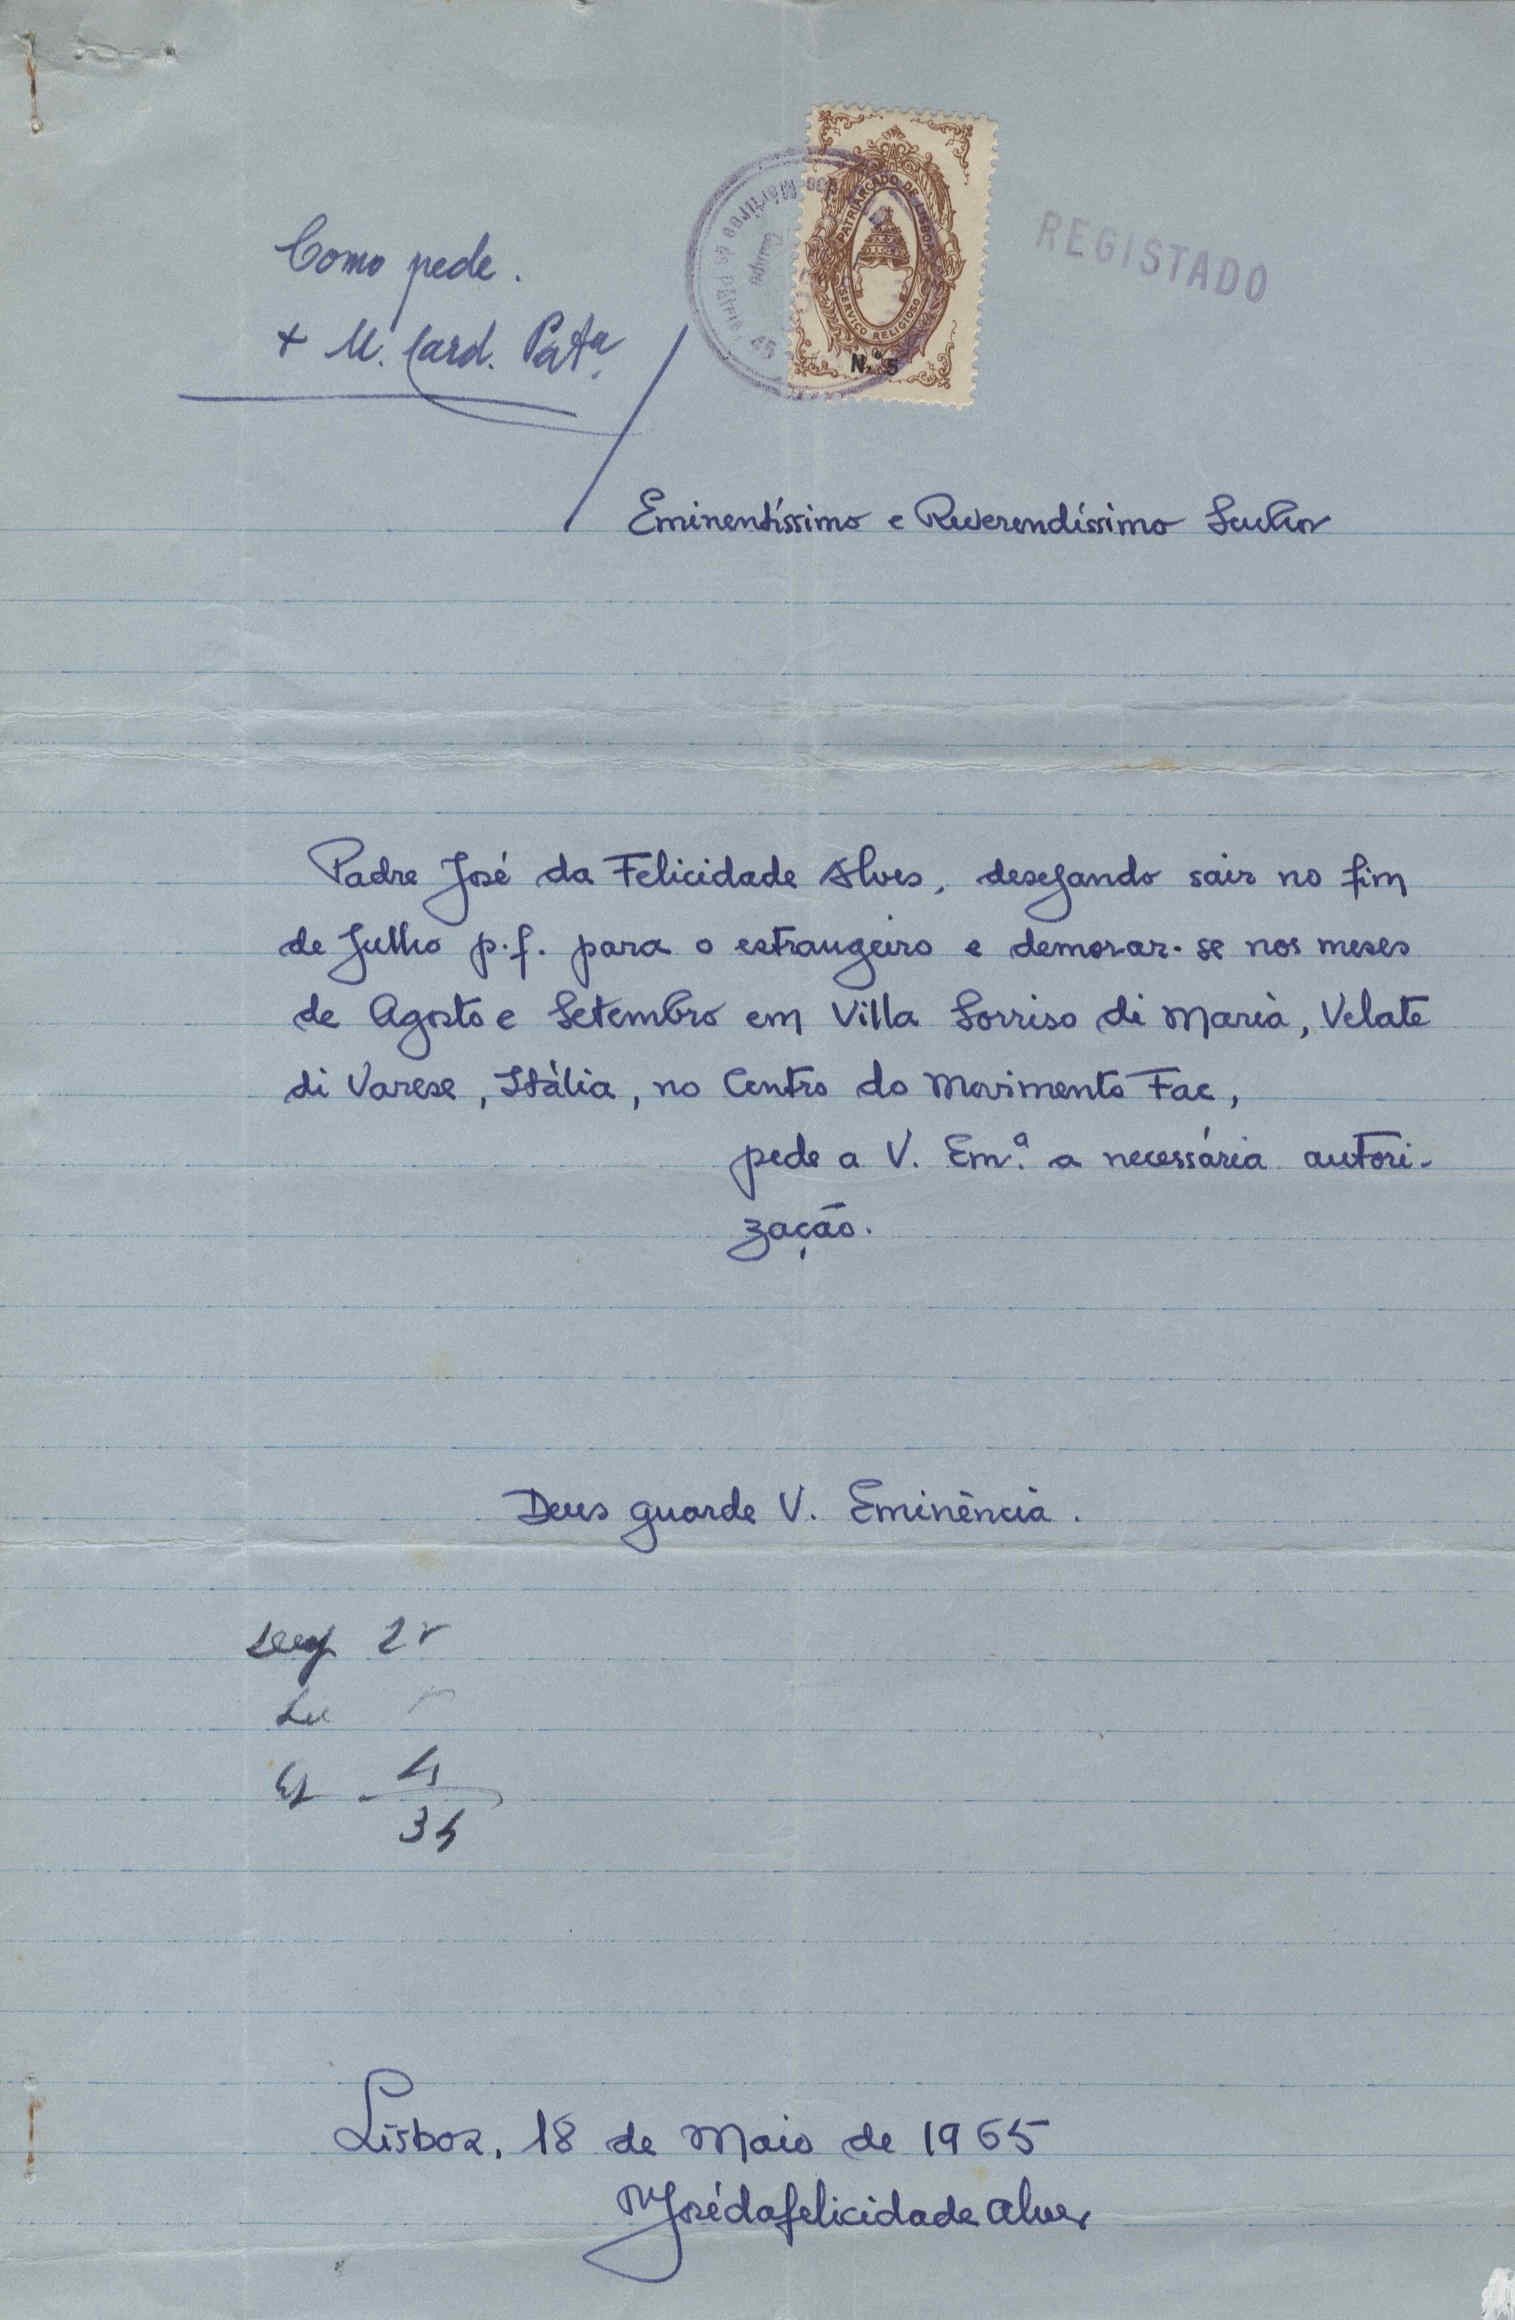 Como pede.
+ M. Card. Pat.ª
PATRIARCADO DE LISBOA
SERVIÇO RELIGIOSO
N.º 5
REGISTADO
Eminentíssimo e Reverendíssimo Senhor
Padre José da Felicidade Alves, desejando sair no fim
de Julho p.f. para o estrangeiro e demorar-se nos meses
de Agosto e Setembro em Villa Sorriso di Maria, Velate
di Varese, Itália, no Centro do Movimento Fac,
pede a V. Em.ª a necessária autori-
zação.
Deus guarde V. Eminência.
Lisboa, 18 de Maio de 1965
José da felicidade alves